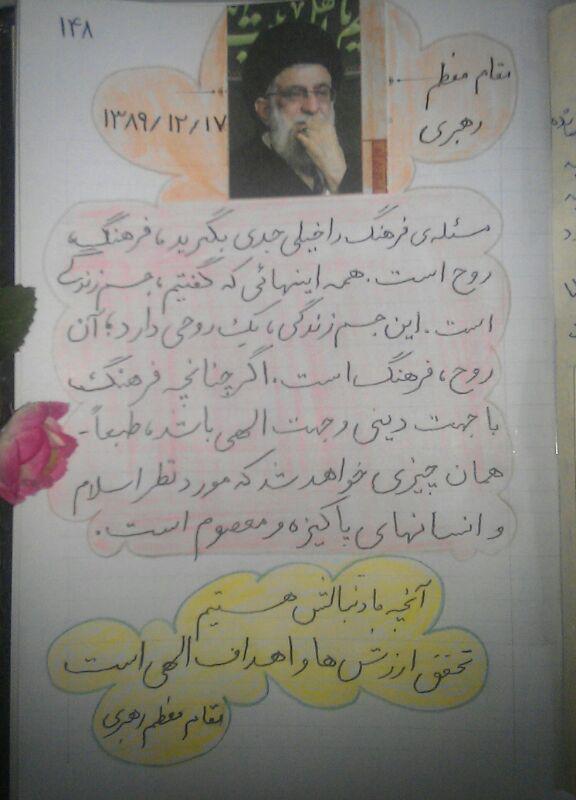 ۱۴۸
مقام معظم
رهبری
۱۳۸۹/۱۲/۱۷
مسئله‌ی فرهنگ را خیلی جدی بگیرید، فرهنگ،
روح است. همه اینهائی که گفتیم، جسم زندگی
است. این جسم زندگی، یک روحی دارد؛ آن
روح، فرهنگ است. اگر چنانچه فرهنگ
با جهت دینی و جهت الهی باشد، طبعاً
همان چیزی خواهد شد که مورد نظر اسلام
و انسانهای پاکیزه و معصوم است.
آنچه ما دنبالش هستیم
تحقق ارزش ها و اهداف الهی است
مقام معظم رهبری